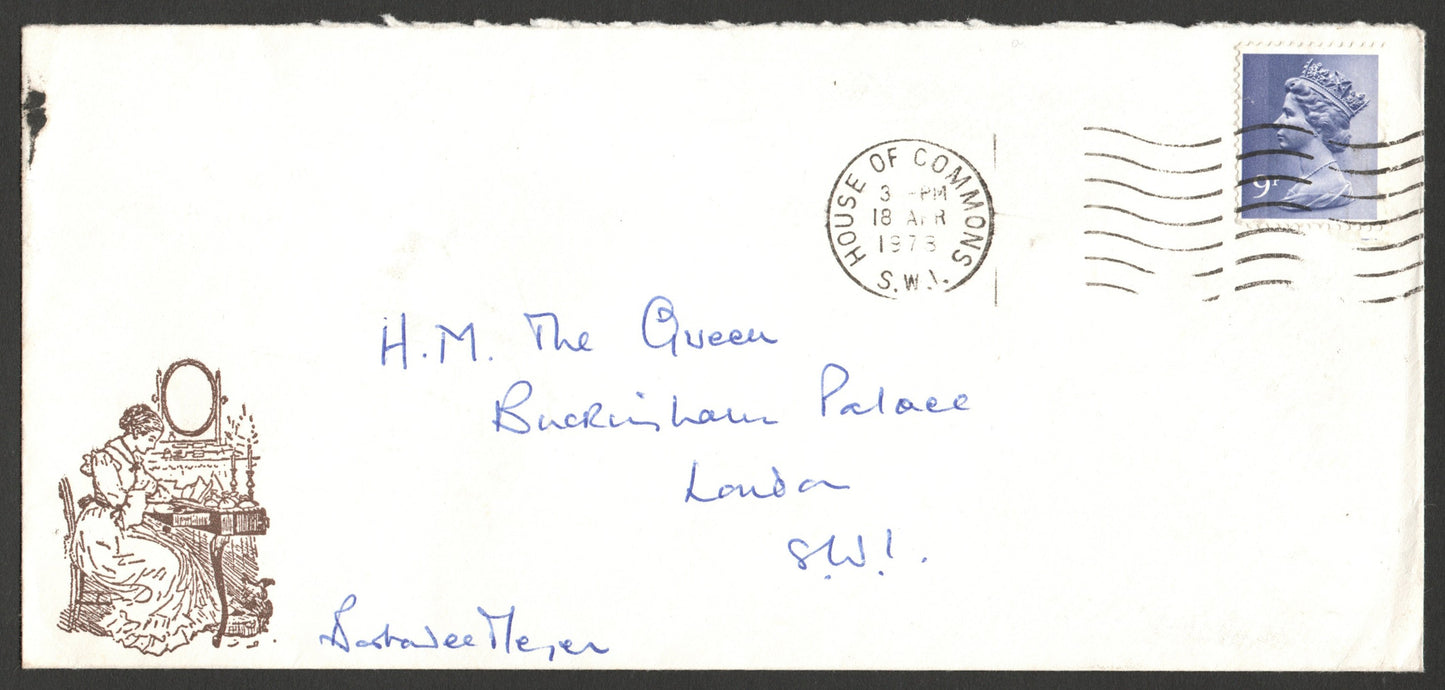 HOUSE OF COMMONS
3 -PM
18 APR
1978
S.W.1.
9P
H.M. The Queen
Buckingham Palace
London
S.W.1.
Meyer